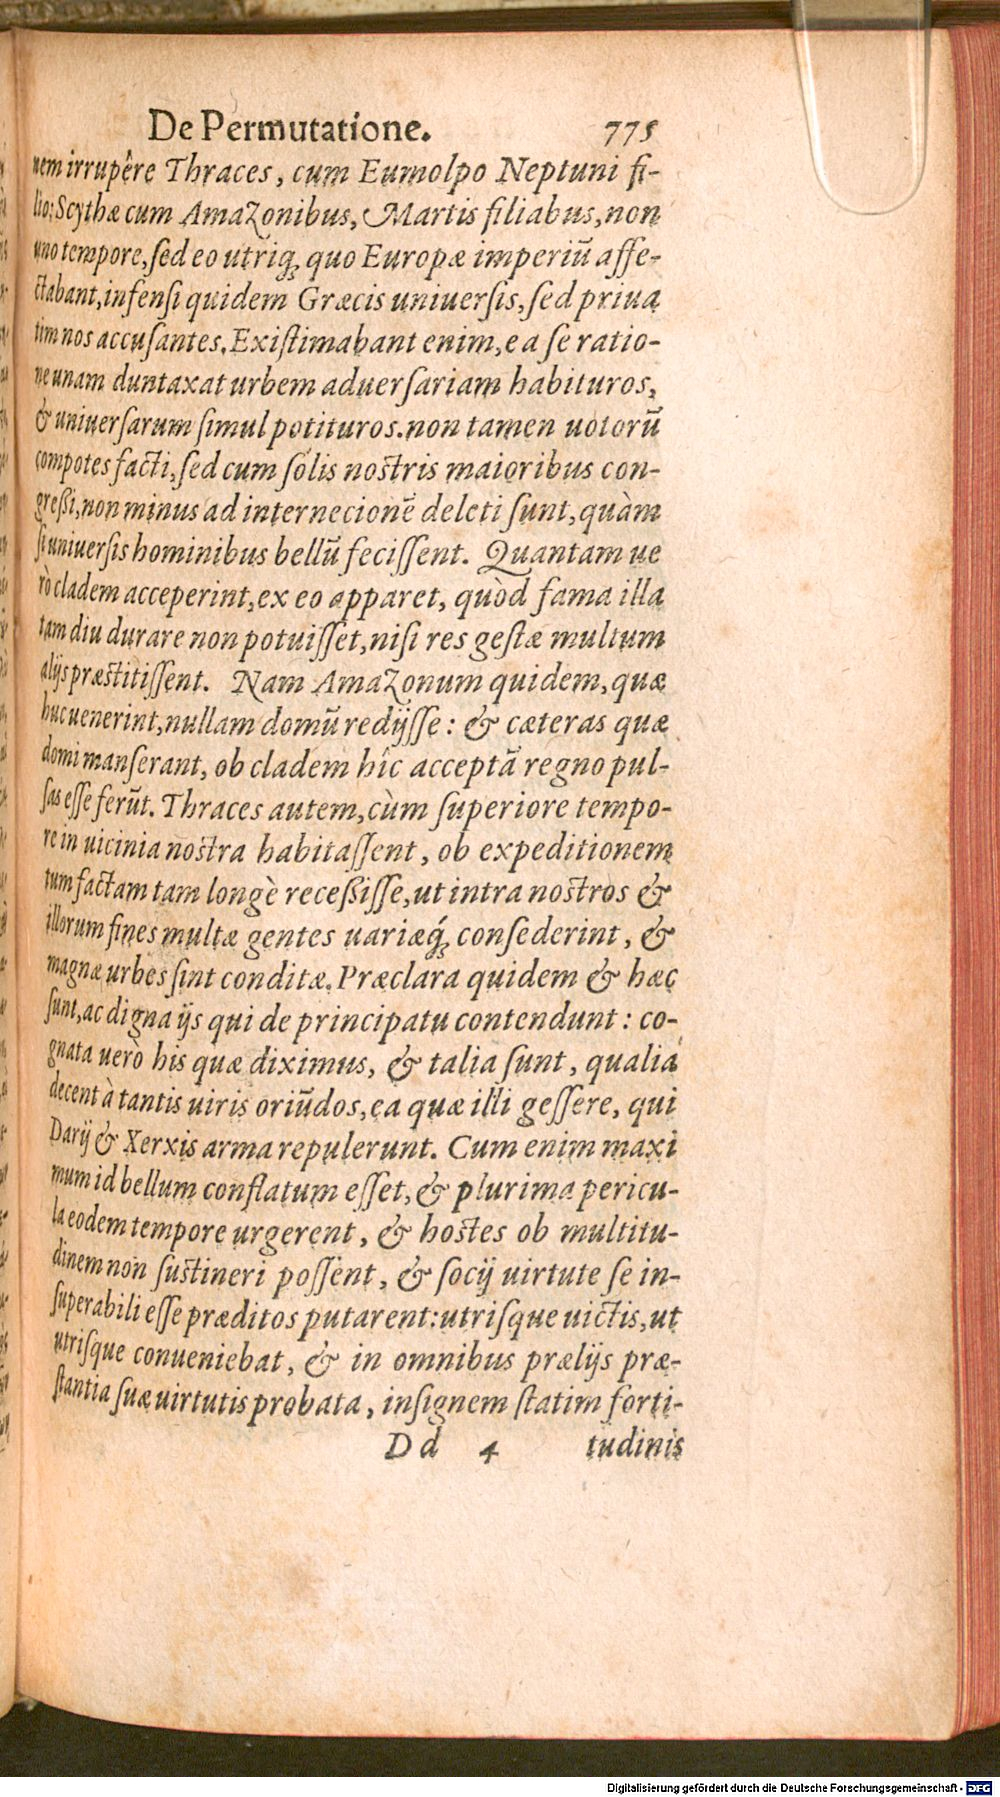 De Permutatione. 775
nem irrupêre Thraces, cum Eumolpo Neptuni fi-
lio: Scythæ cum Amazonibus, Martis filiabus, non
uno tempore, sed eo utriq; quo Europæ imperiũ affe-
ctabant, infensi quidem Græcis uniuersis, sed priua
tim nos accusantes. Existimabant enim, ea se ratio-
ne unam duntaxat urbem aduersariam habituros,
& uniuersarum simul potituros. non tamen uotorũ
compotes facti, sed cum solis nostris maioribus con-
greßi, non minus ad internecionẽ deleti sunt, quàm
si uniuersis hominibus bellũ fecissent. Quantam ue
rò cladem acceperint, ex eo apparet, quòd fama illa
tam diu durare non potuisset, nisi res gestæ multum
alijs præstitissent. Nam Amazonum quidem, quæ
huc uenerint, nullam domũ redijsse: & cæteras quæ
domi manserant, ob cladem hîc acceptã regno pul-
sas esse ferũt. Thraces autem, cùm superiore tempo-
re in uicinia nostra habitassent, ob expeditionem
tum factam tam longè receßisse, ut intra nostros &
illorum fines multæ gentes uariæq́; consederint, &
magnæ urbes sint conditæ. Præclara quidem & hæc
sunt, ac digna ijs qui de principatu contendunt: co-
gnata uerò his quæ diximus, & talia sunt, qualia
decent à tantis uiris oriũdos, ea quæ illi gessere, qui
Darij & Xerxis arma repulerunt. Cum enim maxi
mum id bellum conflatum esset, & plurima pericu-
la eodem tempore urgerent, & hostes ob multitu-
dinem non sustineri possent, & socij uirtute se in-
superabili esse præditos putarent: utrisque uictis, ut
utrisque conueniebat, & in omnibus prælijs præ-
stantia suæ uirtutis probata, insignem statim forti-
Dd 4 tudinis
Digitalisierung gefördert durch die Deutsche Forschungsgemeinschaft - DFG